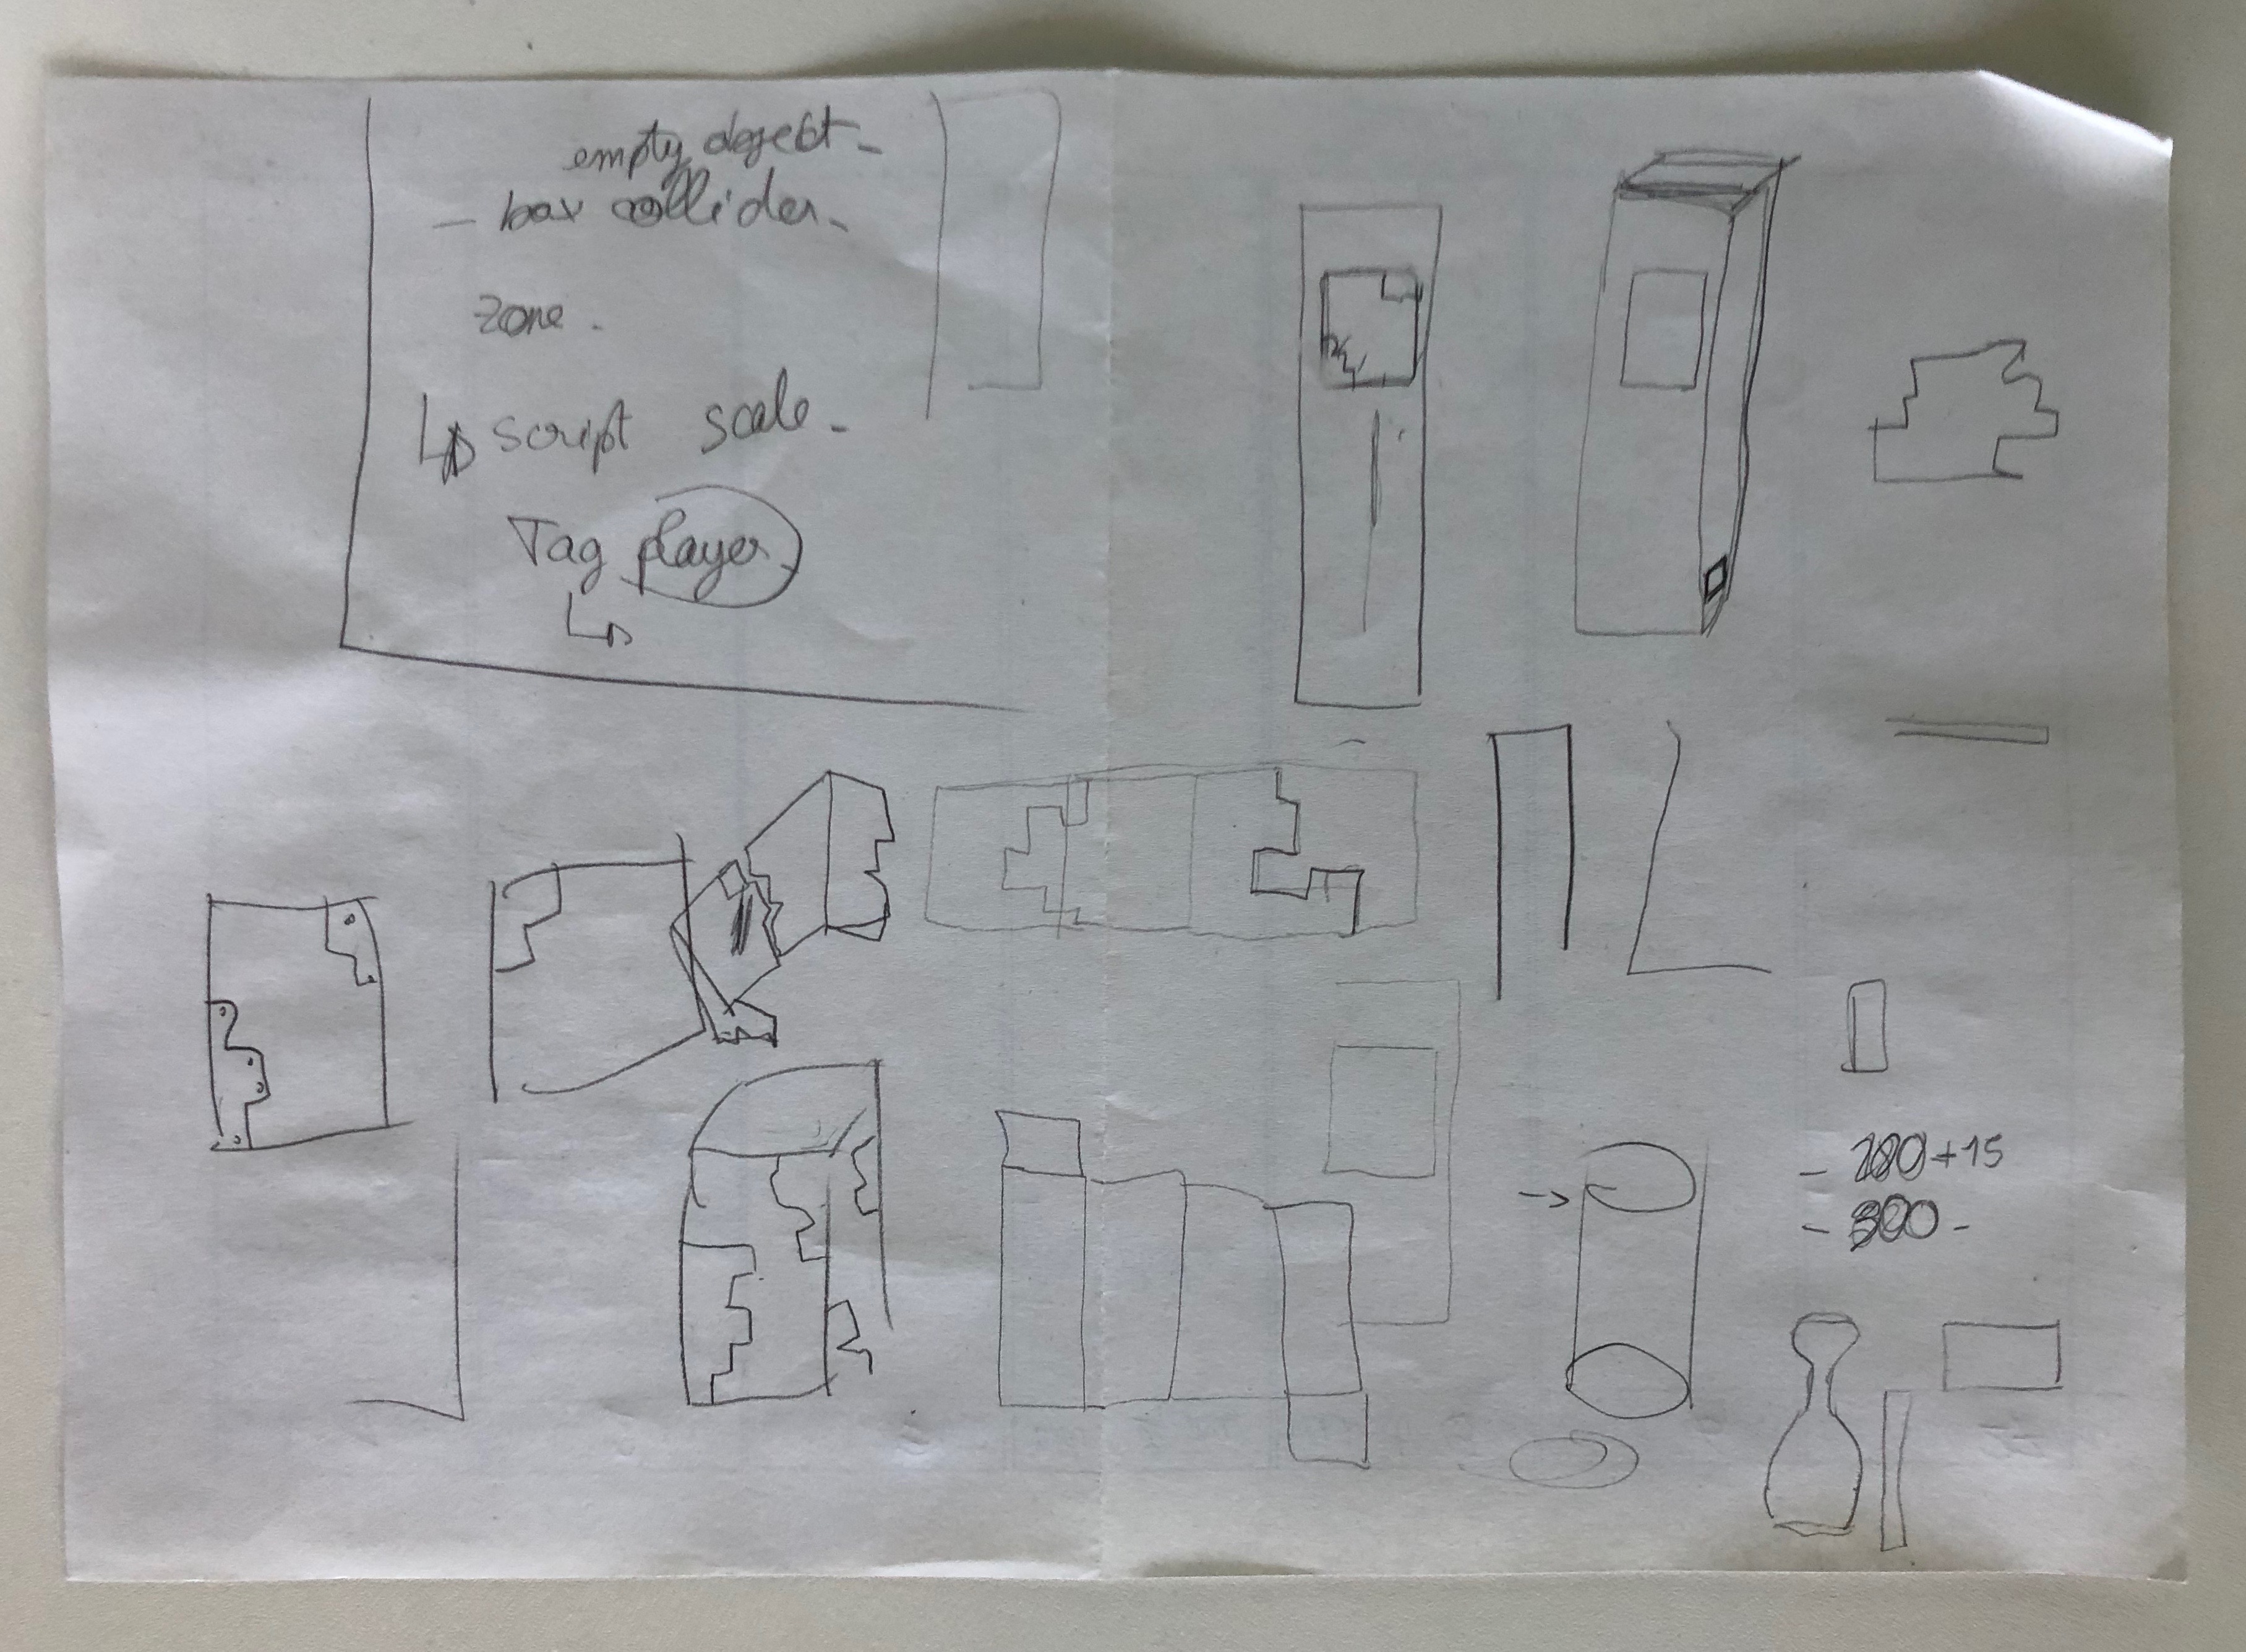 empty object -
- box collider -
zone .
↳ script scale -
Tag player
↳
- 200+15
- 300 -